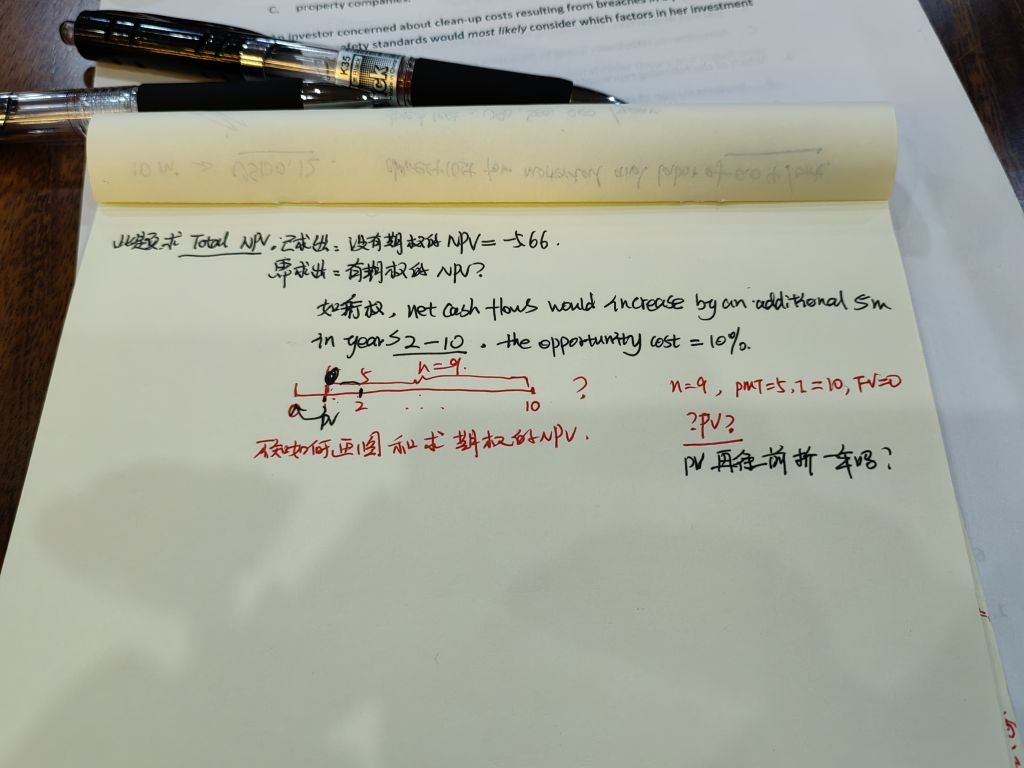 C. property companies
investor concerned about clean-up costs resulting from breaches in
safety standards would most likely consider which factors in her investment
K35
此题求 Total NPV. 已求出: 没有期权的 NPV = -5.66.
要求出: 有期权的 NPV?
如乘权, net cash flows would increase by an additional 5m
in years 2-10. the opportunity cost = 10%.
5 n=9.
0 2 ... 10 ?
PV
不知如何正图和求期权的NPV.
n=9, PMT=5, I=10, FV=0
?PV?
PV 再往前折一年吗?